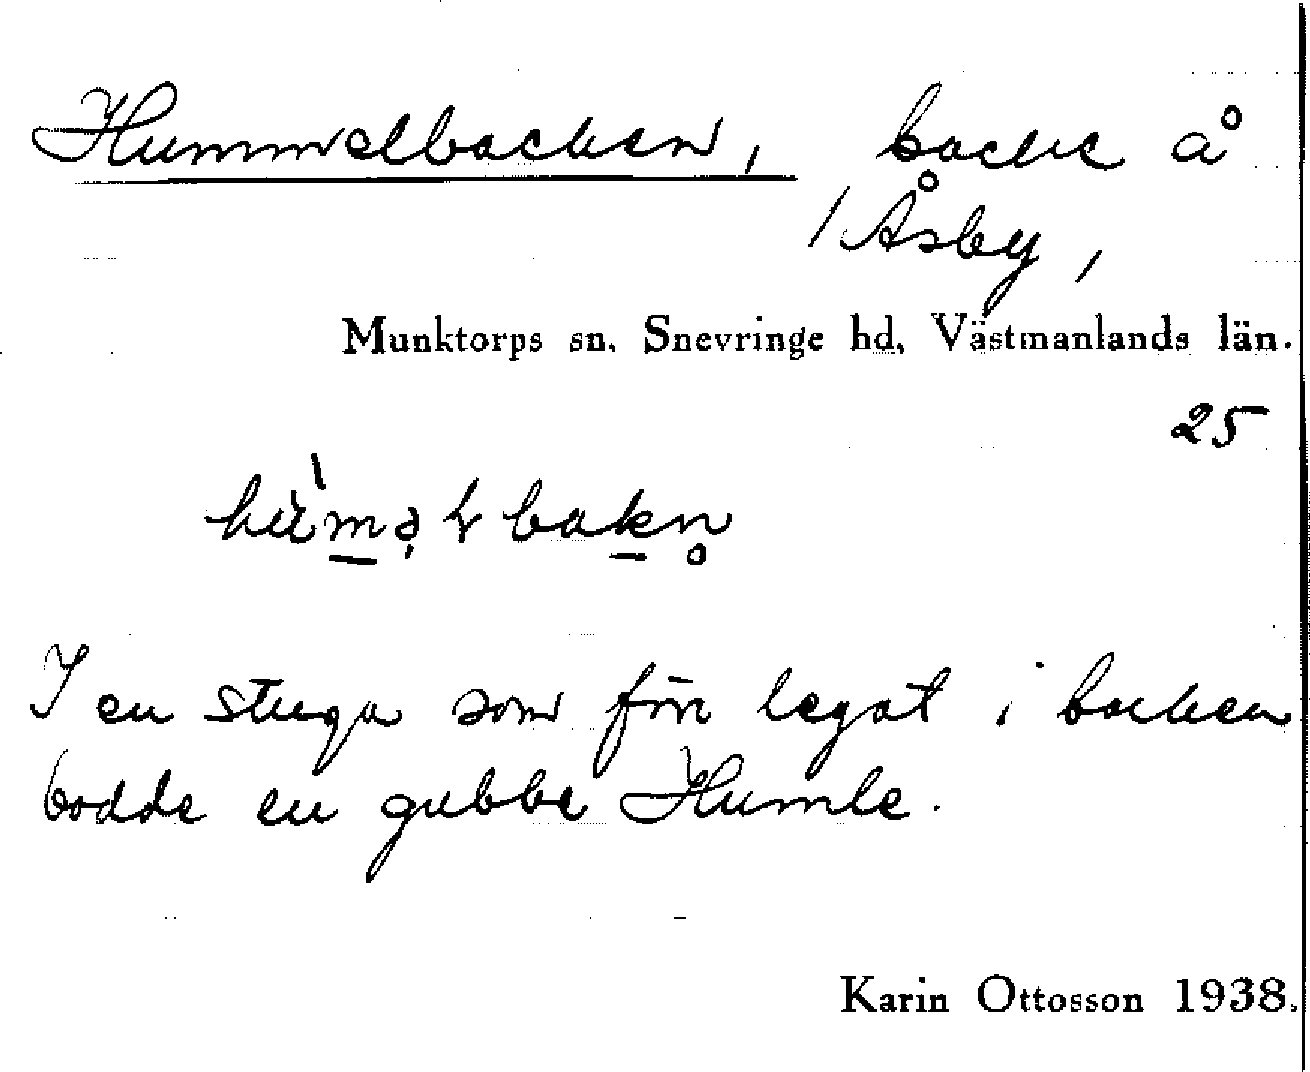 Hummelbacken, backe å
/ Åsby,
Munktorps sn. Snevringe hd, Västmanlands län.
25
I en stuga som förr legat i backen
bodde en gubbe Humle.
Karin Ottosson 1938.